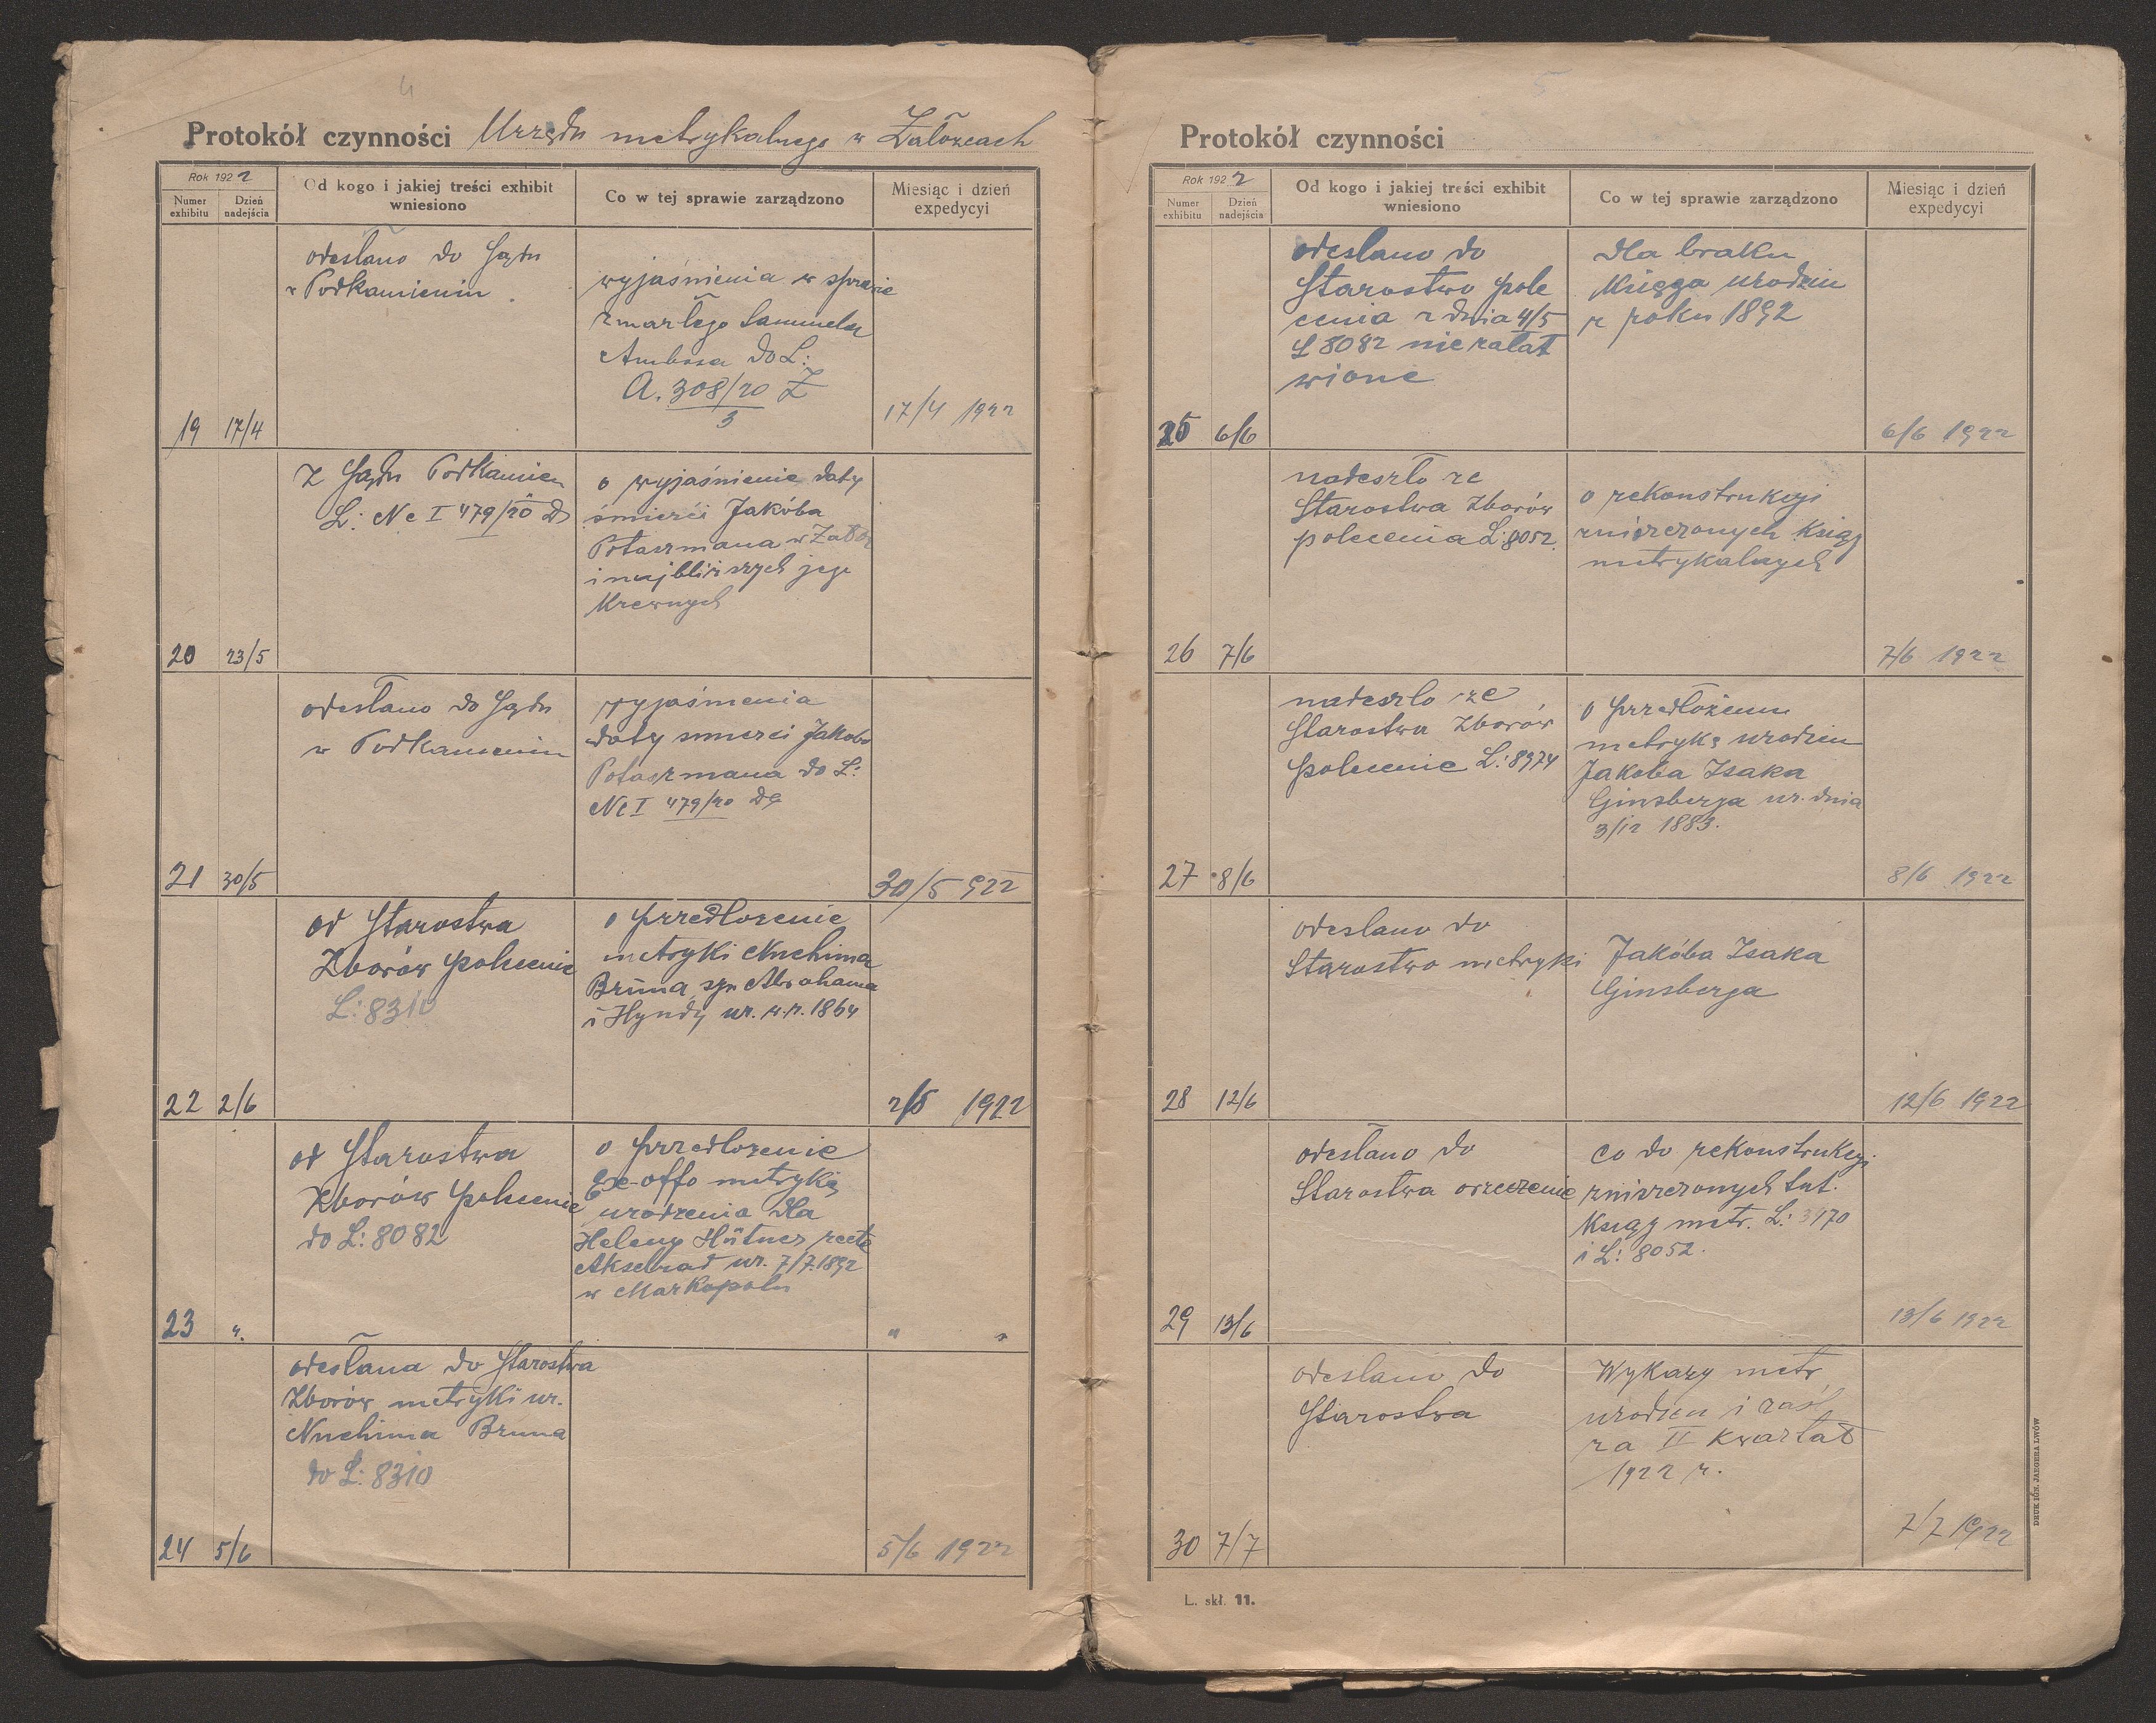 4
Protokół czynności Urzędu metrykalnego w Załoźcach
Rok 1922
Numer exhibitu
Dzień nadejścia
Od kogo i jakiej treści exhibit wniesiono
Co w tej sprawie zarządzono
Miesiąc i dzień expedycyi
odesłano do Sądu
w Podkamieniu
wyjaśnienia w sprawie
zmarłego Sammela
Ambosa do L:
A. 308/20 Z
3
19 17/4
17/4 1922
Z Sądu Podkamien
L: Nc I 479/20
o wyjaśnienie daty
śmierci Jakóba
Potaszmana w Załoź
i najbliższych jego
Krewnych
20 23/5
odesłano do Sądu
w Podkamieniu
wyjaśnienia
daty smierci Jakoba
Potaszmana do L:
Nc I 479/20
21 30/5
30/5 922
od Starostwa
Zborów polecenie
L: 8310
o przedlozenie
metryki Nuchima
Bruna syn Abrahama
i Hyndy ur. w.r. 1864
22 2/6
2/6 1922
od Starostwa
Zborów polecenie
do L: 8082
o przedlozenie
Ex-offo metrykę
urodzenia dla
Heleny Hütner recte
Akselrad ur. 7/7.1892
w Markopolu
23 "
" "
odesłana do Starostwa
Zborów metryki ur.
Nuchima Bruna
do L: 8310
24 5/6
5/6 1922
5
Protokół czynności
Rok 1922
Numer exhibitu
Dzień nadejścia
Od kogo i jakiej treści exhibit wniesiono
Co w tej sprawie zarządzono
Miesiąc i dzień expedycyi
odeslano do
Starostwo pole
cenia z dnia 4/5
L 8082 niezalat
wione
dla braku
Księga urodzin
z roku 1892
25 6/6
6/6 1922
nadeszło ze
Starostwa Zborów
polecenia L: 8052.
o rekonstrukcyi
zniszczonych Ksiąg
metrykalnych
26 7/6
7/6 1922
nadeszlo ze
Starostwa Zborów
polecenie L: 8974
o przedłożeniu
metrykę urodzin
Jakoba Isaka
Ginsberga ur. dnia
3/12 1883.
27 8/6
8/6 1922
odeslano do
Starostwo metryki
Jakóba Isaka
Ginsberga
28 12/6
12/6 1922
odesłano do
Starostwa orzeczenie
co do rekonstrukcyi
zniszczonych tut.
Ksiąg metr. L: 3170
i L: 8052.
29 13/6
13/6 1922
odeslano do
Starostwa
Wykazy metr
urodzin i zaśl.
za II Kwartał
1922 r.
30 7/7
7/7 1922
DRUK IGN. JAEGERA LWÓW
L. skł. 11.